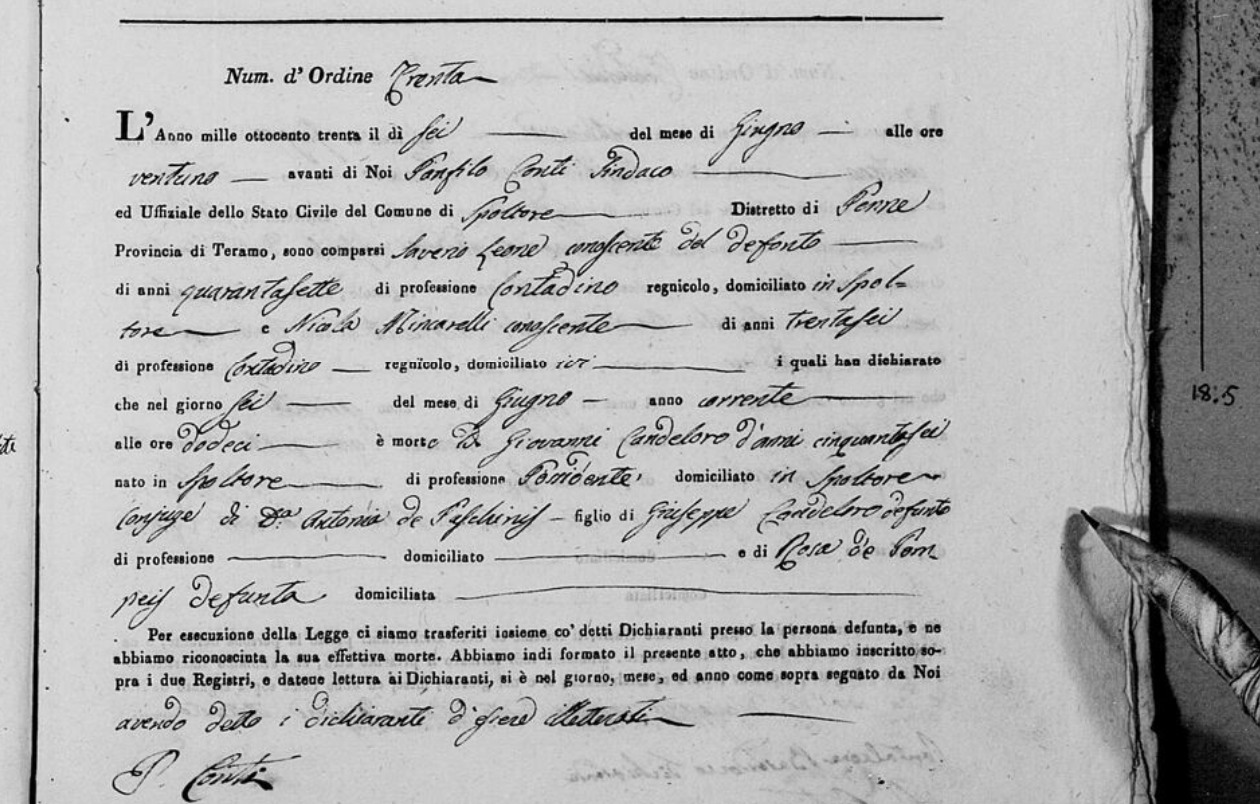 Num. d' Ordine Trenta
L'Anno mille ottocento trenta il dì sei del mese di Giugno alle ore
ventuno avanti di Noi Panfilo Conti Sindaco
ed Uffiziale dello Stato Civile del Comune di Spoltore Distretto di Penne
Provincia di Teramo, sono comparsi Saverio Leone conoscente del defonto
di anni quarantasette di professione Contadino regnicolo, domiciliato in Spol=
tore e Nicola Mincarelli conoscente di anni trentasei
di professione Contadino regnicolo, domiciliato ivi i quali han dichiarato
che nel giorno sei del mese di Giugno anno corrente
alle ore dodeci è morto D. Giovanni Candeloro d'anni cinquantasei
nato in Spoltore di professione Possidente, domiciliato in Spoltore
Conjuge di D.a Antonia de Paschinis figlio di Giuseppe Candeloro defunto
di professione domiciliato e di Rosa de Pom
peis defunta domiciliata
Per esecuzione della Legge ci siamo trasferiti insieme co' detti Dichiaranti presso la persona defunta, e ne
abbiamo riconosciuta la sua effettiva morte. Abbiamo indi formato il presente atto, che abbiamo inscritto so-
pra i due Registri, e datene lettura ai Dichiaranti, si è nel giorno, mese, ed anno come sopra segnato da Noi
avendo detto i dichiaranti d'essere illetterati
P. Conti
18:5